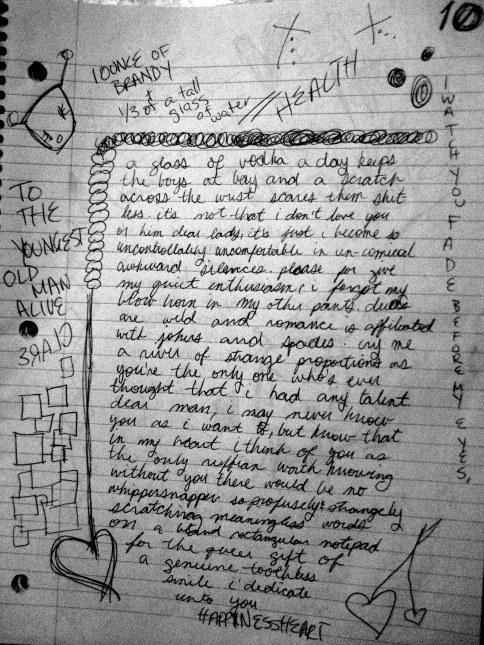 10
1 OUNCE OF
BRANDY
+
1/3 of a tall
glass
of water
// HEALTH
I WATCH YOU FADE BEFORE MY EYES,
TO
THE
YOUNGEST
OLD
MAN
ALIVE
CLARE
a glass of vodka a day keeps
the boys at bay and a scratch
across the wrist scares them shit
less. it's not that i don't love you
or him dear lady, it's just i become so
uncontrollably uncomfortable in un-comical
awkward silences. please for give
my quiet enthusiasm, i forgot my
blow horn in my other pants. deuces
are wild and romance is affiliated
with johns and spades. cry me
a river of strange proportions as
you're the only one who's ever
thought that i had any talent
dear man, i may never know
you as i want to, but know that
in my heart i think of you as
the only ruffian worth knowing
without you there would be no
whippersnapper so profusely & strangely
scratching meaningless words
on a bland rectangular notepad
for the queer gift of
a genuine toothless
smile i dedicate
unto you
HAPPINESSHEART